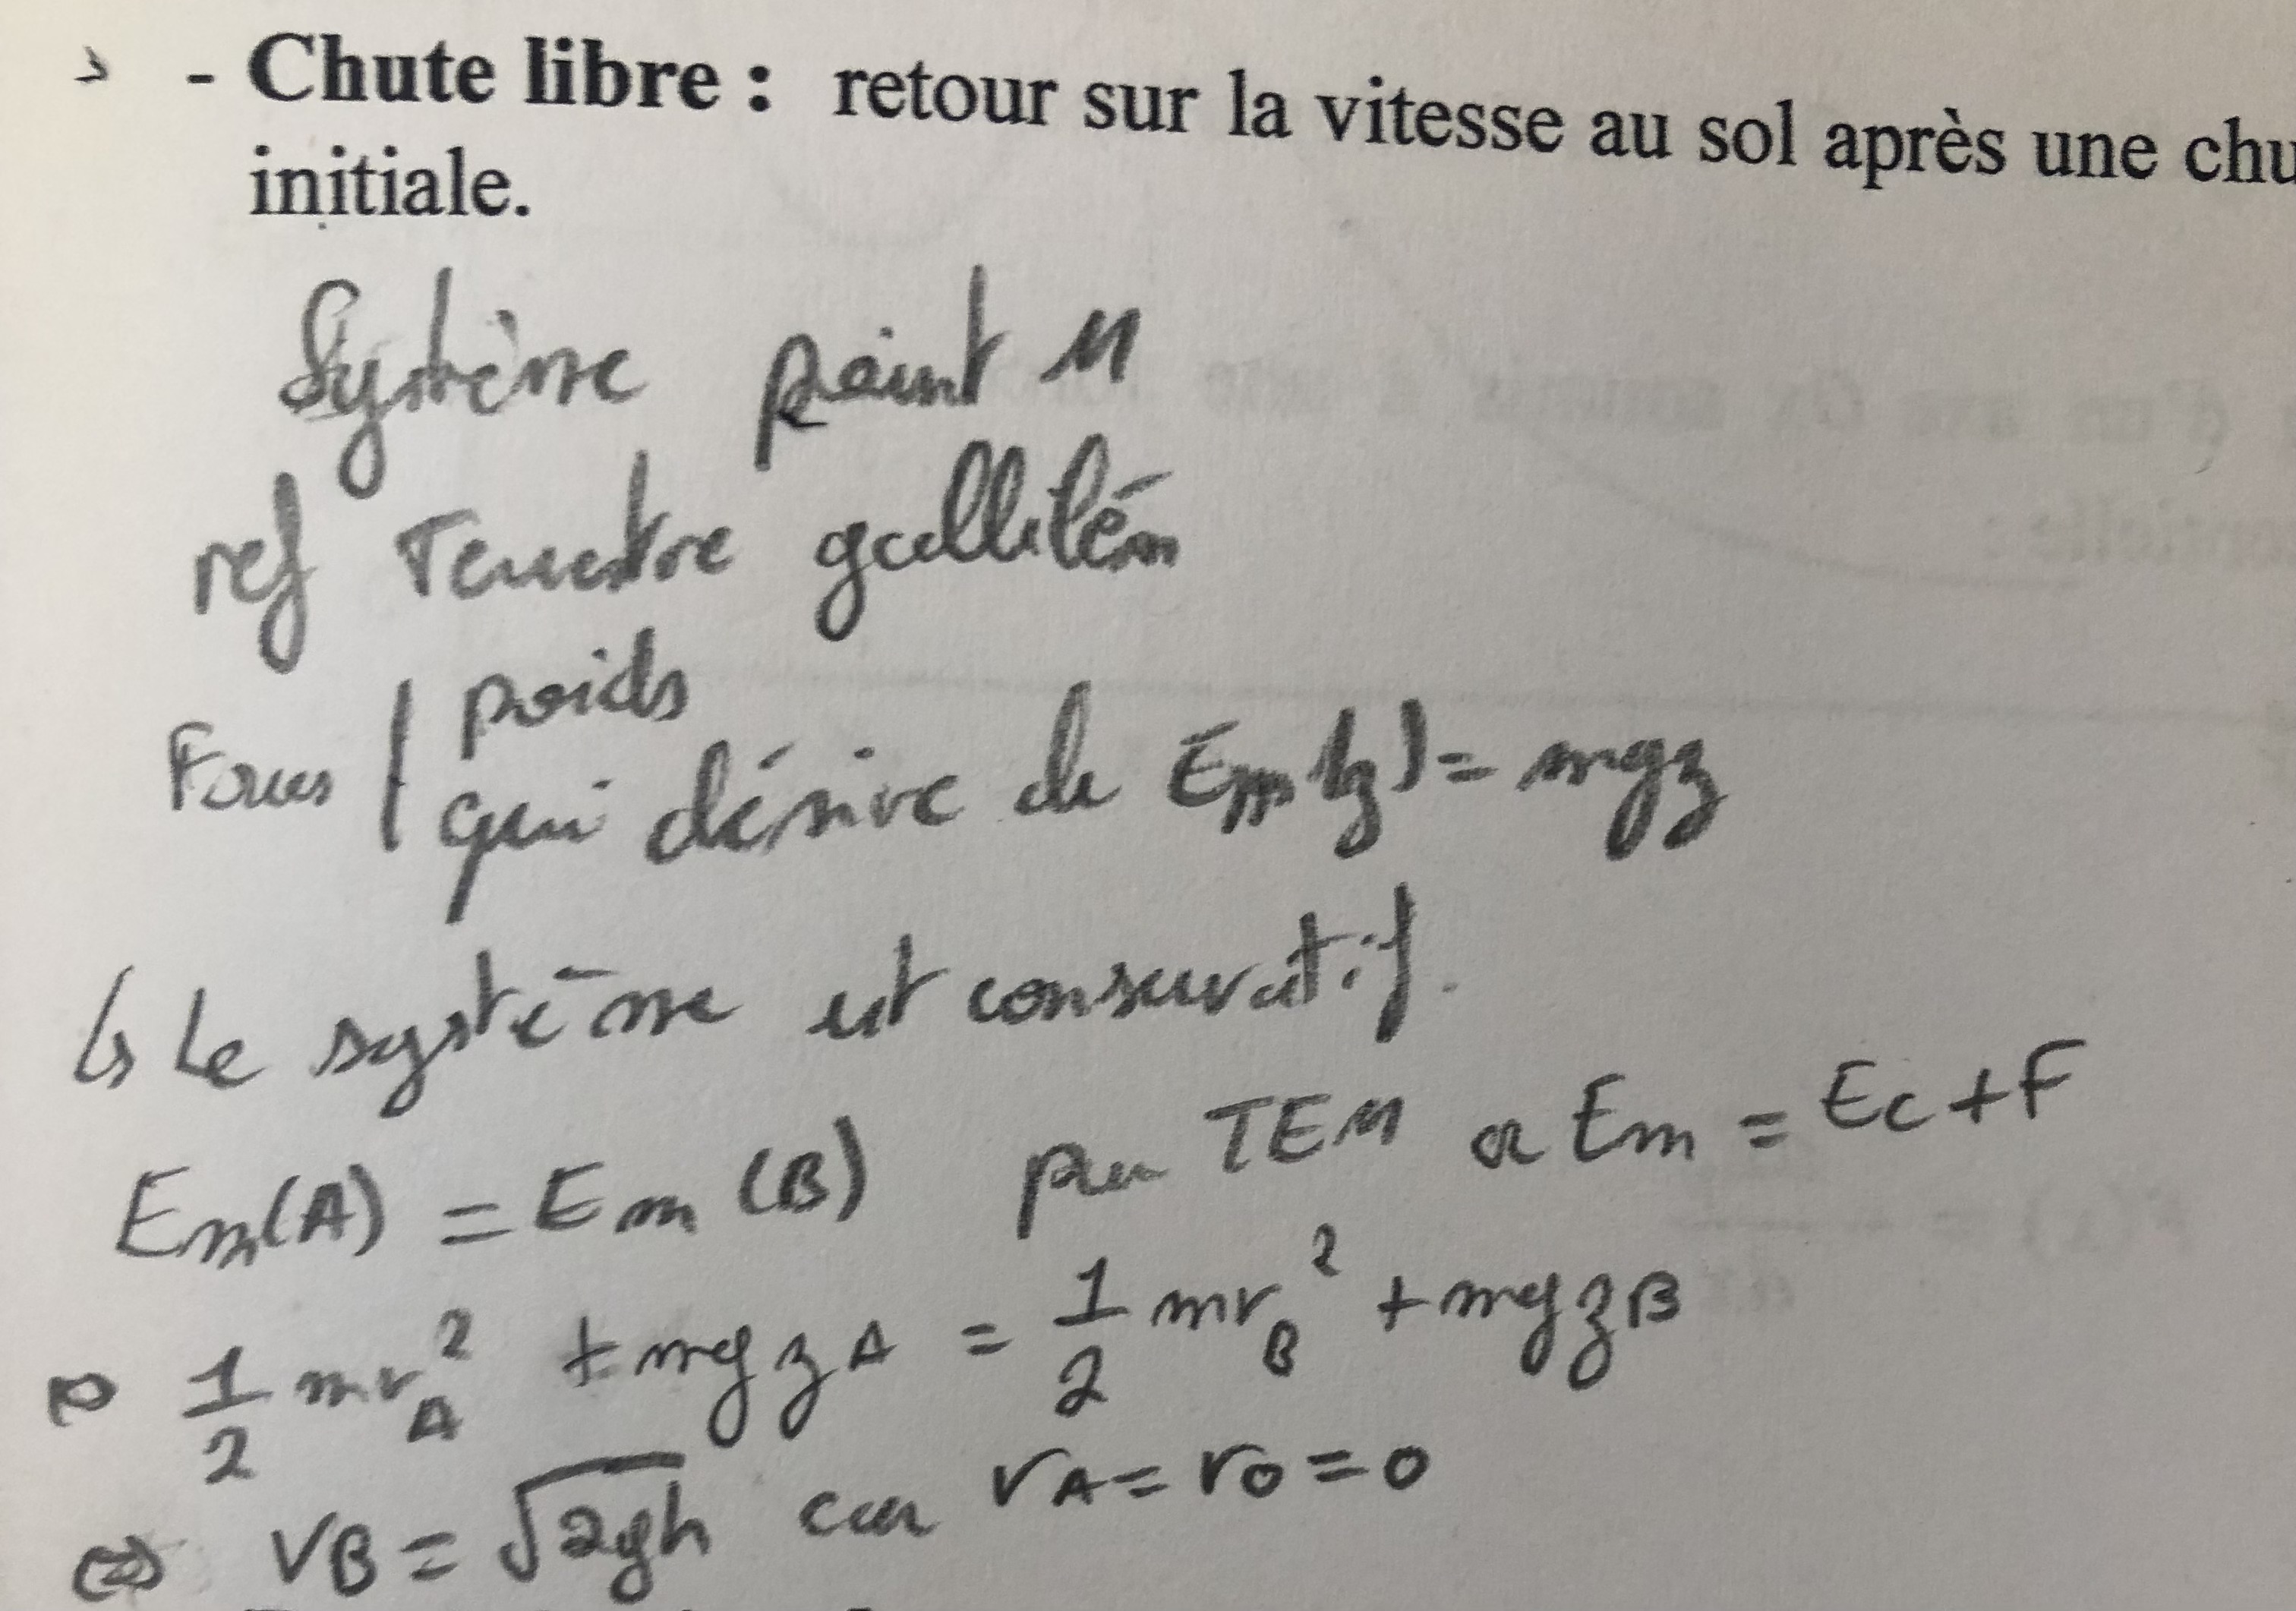 - Chute libre : retour sur la vitesse au sol après une chu
initiale.
Système point M
ref Terrestre galliléen
Forces | poids
qui dérive de Epp(z) = mgz
↳ Le système est conservatif.
Em(A) = Em(B) par TEM or Em = Ec + E
⇔ 1/2 mv_A² + mgz_A = 1/2 mv_B² + mgz_B
⇔ v_B = √2gh car v_A = v_0 = 0